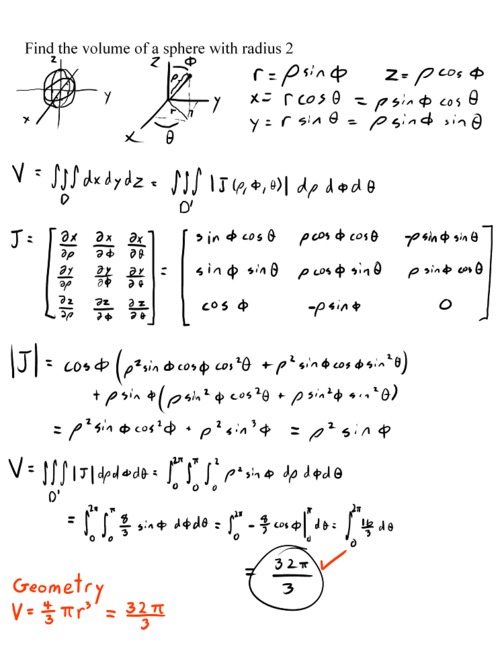 Find the volume of a sphere with radius 2
z
y
x
z
Φ
ρ
r
y
x
θ
r = ρ sin Φ z = ρ cos Φ
x = r cos θ = ρ sin Φ cos θ
y = r sin θ = ρ sin Φ sin θ
V = ∭_D dx dy dz = ∭_D' |J(ρ, Φ, θ)| dρ dΦ dθ
J = [∂x/∂ρ ∂x/∂Φ ∂x/∂θ] = [sin Φ cos θ ρ cos Φ cos θ -ρ sin Φ sin θ]
[∂y/∂ρ ∂y/∂Φ ∂y/∂θ] [sin Φ sin θ ρ cos Φ sin θ ρ sin Φ cos θ]
[∂z/∂ρ ∂z/∂Φ ∂z/∂θ] [cos Φ -ρ sin Φ 0]
|J| = cos Φ (ρ² sin Φ cos Φ cos² θ + ρ² sin Φ cos Φ sin² θ)
+ ρ sin Φ (ρ sin² Φ cos² θ + ρ sin² Φ sin² θ)
= ρ² sin Φ cos² Φ + ρ² sin³ Φ = ρ² sin Φ
V = ∭_D' |J| dρ dΦ dθ = ∫₀^2π ∫₀^π ∫₀^2 ρ² sin Φ dρ dΦ dθ
= ∫₀^2π ∫₀^π 8/3 sin Φ dΦ dθ = ∫₀^2π -8/3 cos Φ |₀^π dθ = ∫₀^2π 16/3 dθ
= 32π/3 ✓
Geometry
V = 4/3 π r³ = 32π/3